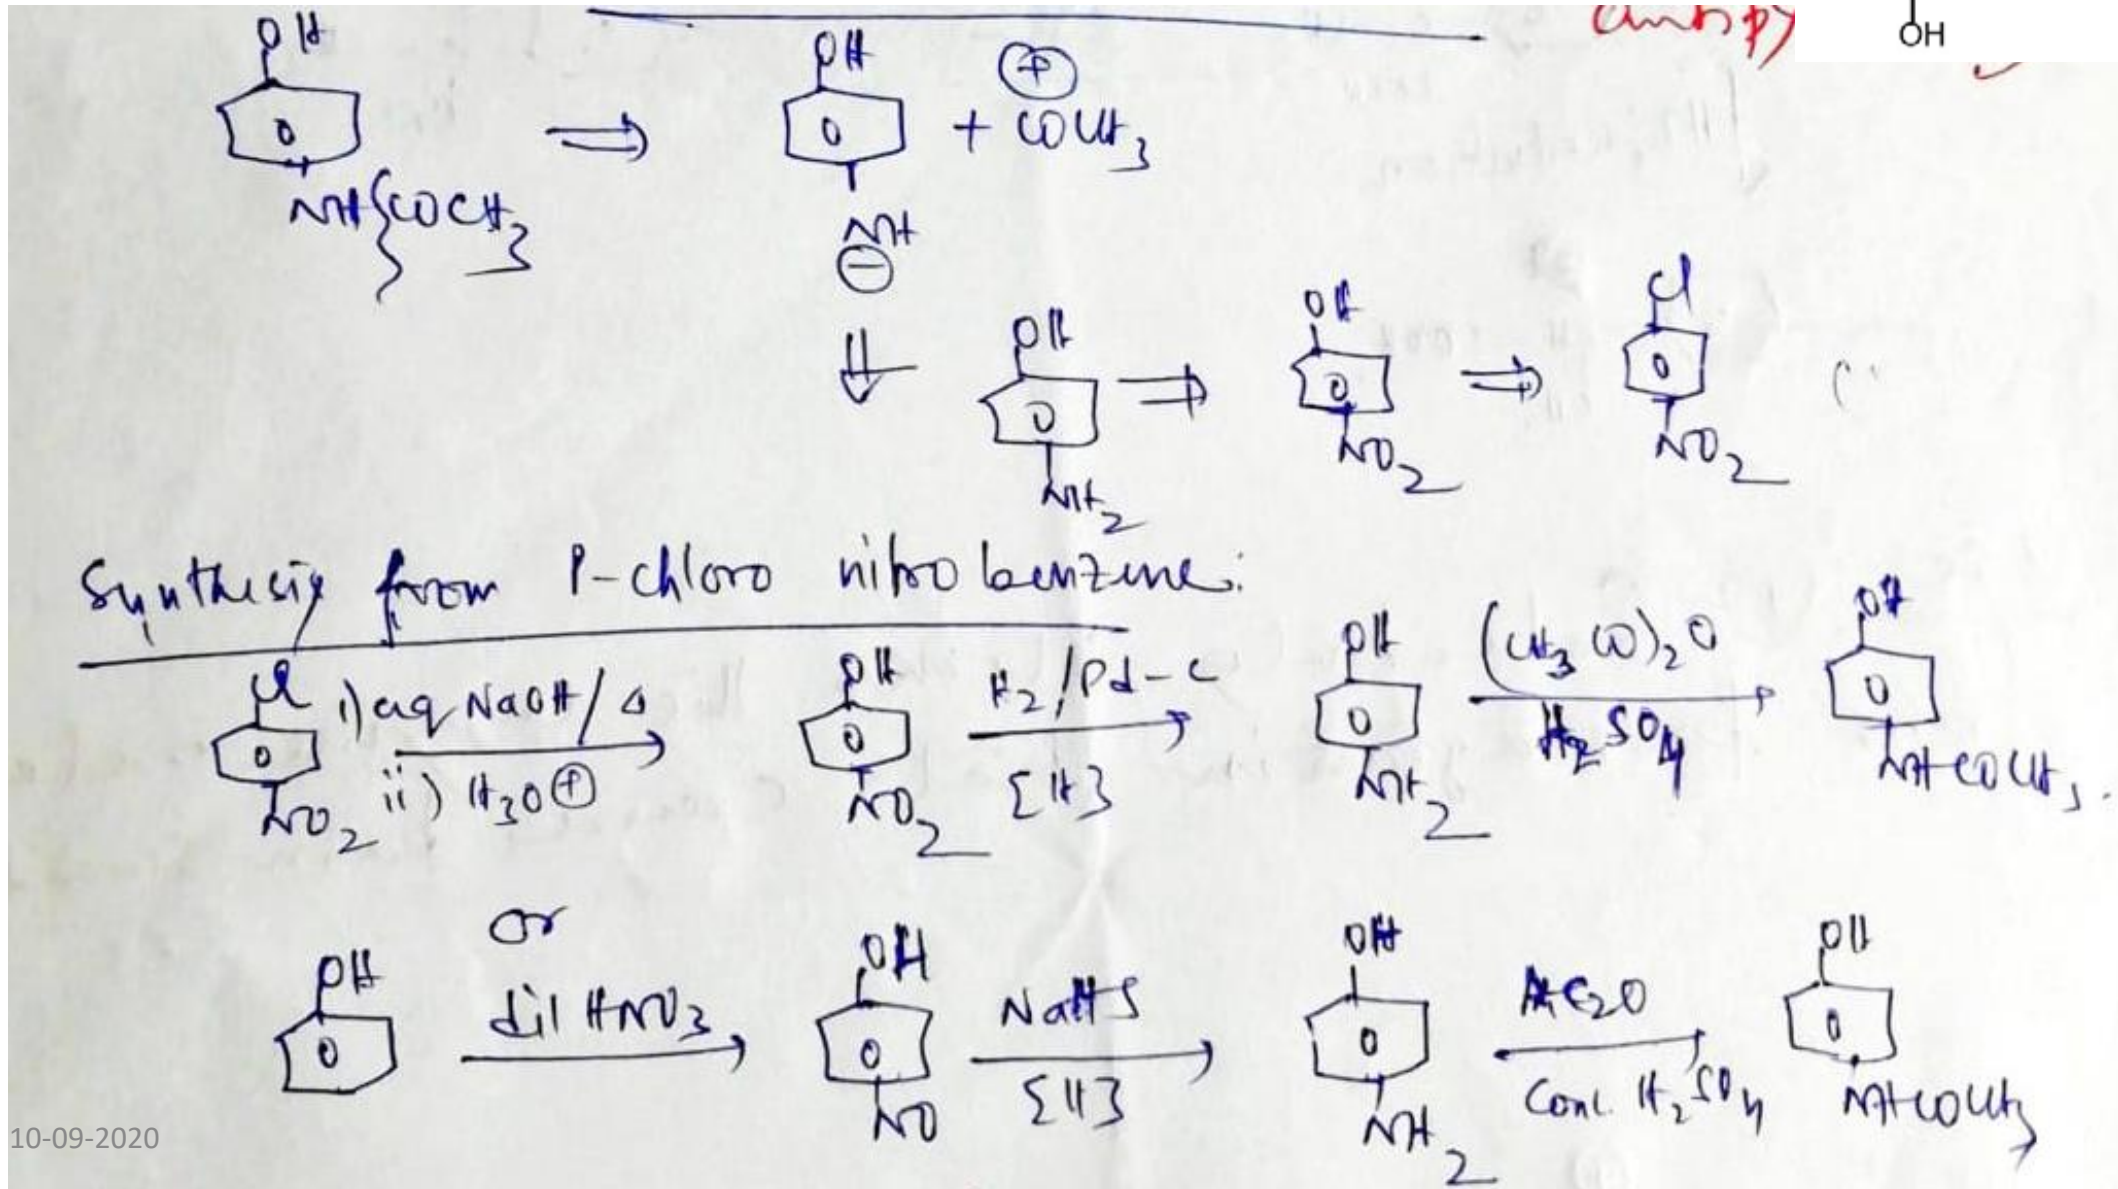 OH
OH
OH
⊕
NH COCH3
+ COCH3
NH
⊖
OH
OH
Cl
NH2
NO2
NO2
Synthesis from P-chloro nitrobenzene:
Cl
i) aq NaOH/Δ
ii) H3O⊕
NO2
OH
NO2
H2/Pd-C
[H]
OH
NH2
(CH3CO)2O
H2SO4
OH
NHCOCH3.
or
OH
dil HNO3
OH
NO
NaHS
[H]
OH
NH2
AC2O
Conc. H2SO4
OH
NHCOCH3
10-09-2020